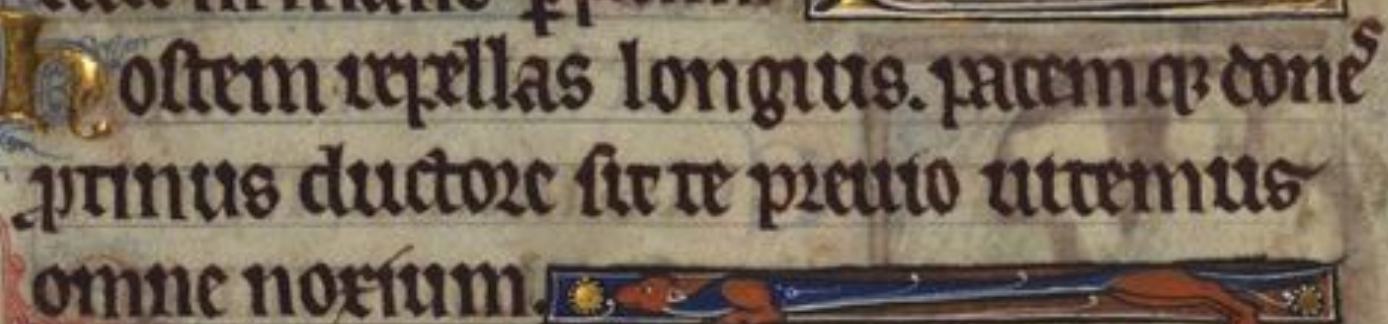 hostem repellas longius. pacemqꝫ dones
ꝓtinus ductore sic te preuio uitemus
omne noxium.